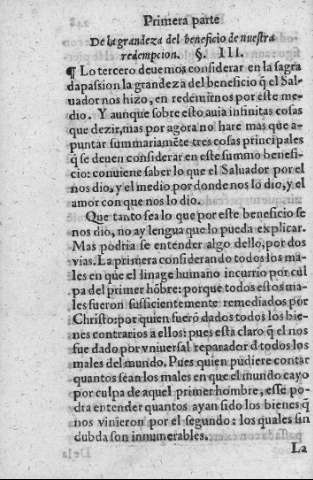 Primera parte
De la grandeza del beneficio de nuestra
redempcion. §. III.
¶ Lo tercero deuemos considerar en la sagra
da passion la grandeza del beneficio q̃ el Sal-
uador nos hizo, en redemirnos por este me-
dio. Y aunque sobre esto auia infinitas cosas
que dezir, mas por agora no hare mas que a-
puntar summariamẽte tres cosas principales
q̃ se deuen considerar en este summo benefi-
cio: conuiene saber lo que el Saluador por el
nos dio, y el medio por donde nos lo dio, y el
amor con que nos lo dio.
Que tanto sea lo que por este beneficio se
nos dio, no ay lengua que lo pueda explicar.
Mas podria se entender algo dello, por dos
vias. La primera considerando todos los ma-
les en que el linage humano incurrio por cul
pa del primer hõbre: porque todos estos ma-
les fueron sufficientemente remediados por
Christo: por quien fuerõ dados todos los bie-
nes contrarios a ellos: pues esta claro q̃ el nos
fue dado por vniuersal reparador d̃ todos los
males del mundo. Pues quien pudiere contar
quantos sean los males en que el mundo cayo
por culpa de aquel primer hombre, esse po-
dra entender quantos ayan sido los bienes q̃
nos vinieron por el segundo: los quales sin
dubda son innumerables.
La